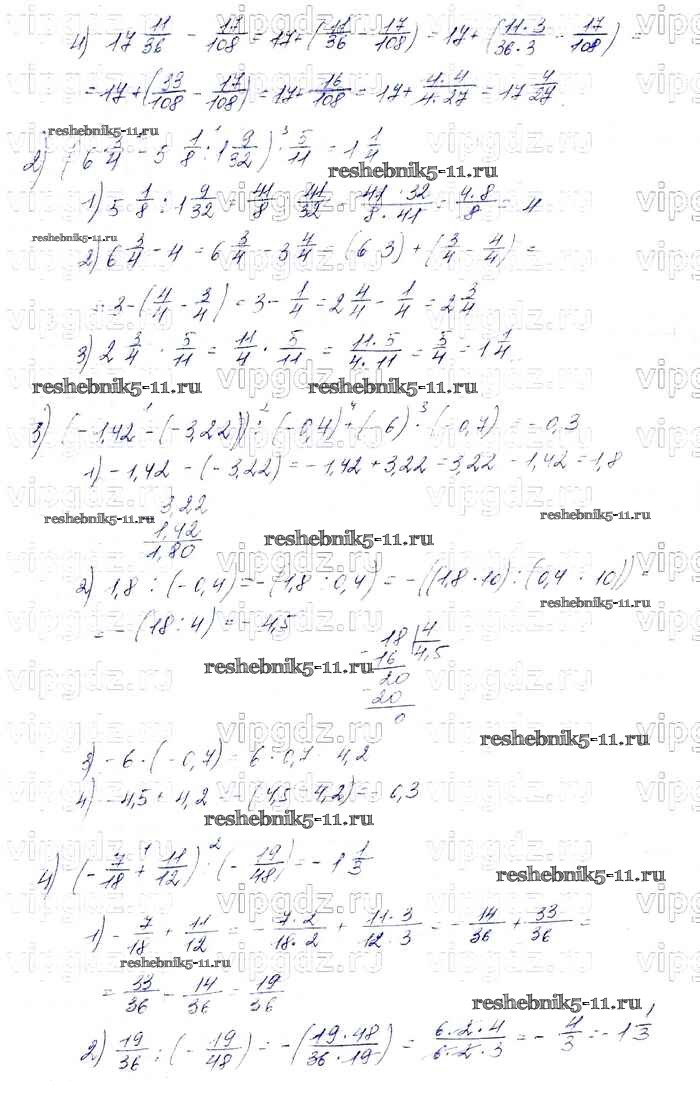 4) 17 11/36 - 17/108 = 17 + (11/36 - 17/108) = 17 + (11·3/36·3 - 17/108) =
= 17 + (33/108 - 17/108) = 17 + 16/108 = 17 + 4·4/4·27 = 17 4/27
reshebnik5-11.ru
2) (6 3/4 - 5 1/8 : 1 9/32) · 5/11 = 1 1/4
reshebnik5-11.ru
1) 5 1/8 : 1 9/32 = 41/8 : 41/32 = 41·32/8·41 = 4·8/8 = 4
reshebnik5-11.ru
2) 6 3/4 - 4 = 6 3/4 - 3 4/4 = (6 3) + (3/4 - 4/4) =
= 3 - (4/4 - 3/4) = 3 - 1/4 = 2 4/4 - 1/4 = 2 3/4
3) 2 3/4 · 5/11 = 11/4 · 5/11 = 11·5/4·11 = 5/4 = 1 1/4
reshebnik5-11.ru reshebnik5-11.ru
3) (-1,42 - (-3,22)) : (-0,4) + (-6) · (-0,7) = -0,3
1) -1,42 - (-3,22) = -1,42 + 3,22 = 3,22 - 1,42 = 1,8
3,22
reshebnik5-11.ru reshebnik5-11.ru
1,42
reshebnik5-11.ru
1,80
2) 1,8 : (-0,4) = -(1,8 : 0,4) = -((1,8·10) : (0,4 · 10)) =
reshebnik5-11.ru
= -(18 : 4) = -4,5
18 4
16 4,5
reshebnik5-11.ru
20
20
0
reshebnik5-11.ru
3) -6 · (-0,7) = 6 · 0,7 4,2
4) -4,5 + 4,2 = -(4,5 4,2) = - 0,3
reshebnik5-11.ru
4) (-7/18 + 11/12) : (-19/48) = -1 1/3
reshebnik5-11.ru
1) -7/18 + 11/12 = -7·2/18·2 + 11·3/12 3 = -14/36 + 33/36 =
reshebnik5-11.ru
= 33/36 - 14/36 = 19/36
reshebnik5-11.ru
2) 19/36 : (-19/48) = -(19·48/36·19) = 6·2·4/6·2·3 = -4/3 = -1 1/3
reshebnik5-11.ru
vipgdz.ru